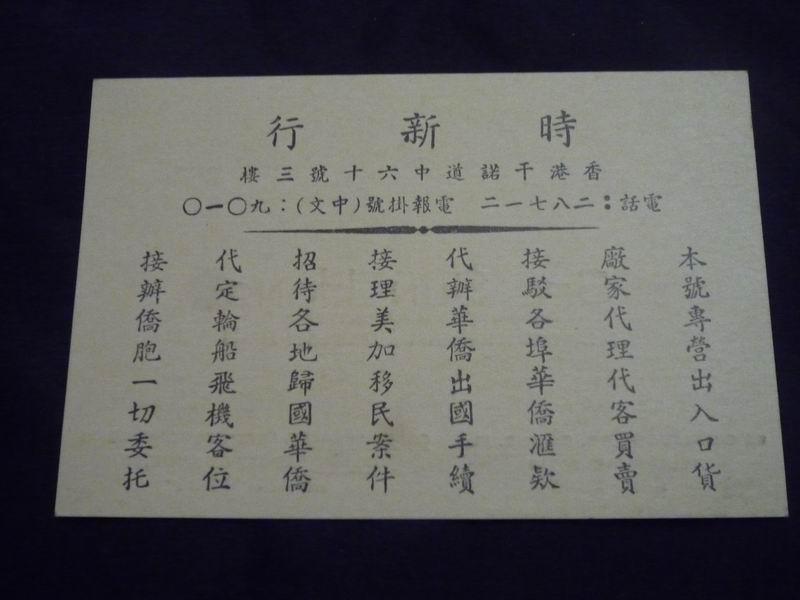 時新行
香港干諾道中六十號三樓
電話：二八七一二 電報掛號(中文)：九〇一〇
本號專營出入口貨
廠家代理代客買賣
接駁各埠華僑滙欵
代辦華僑出國手續
接理美加移民案件
招待各地歸國華僑
代定輪船飛機客位
接辦僑胞一切委托